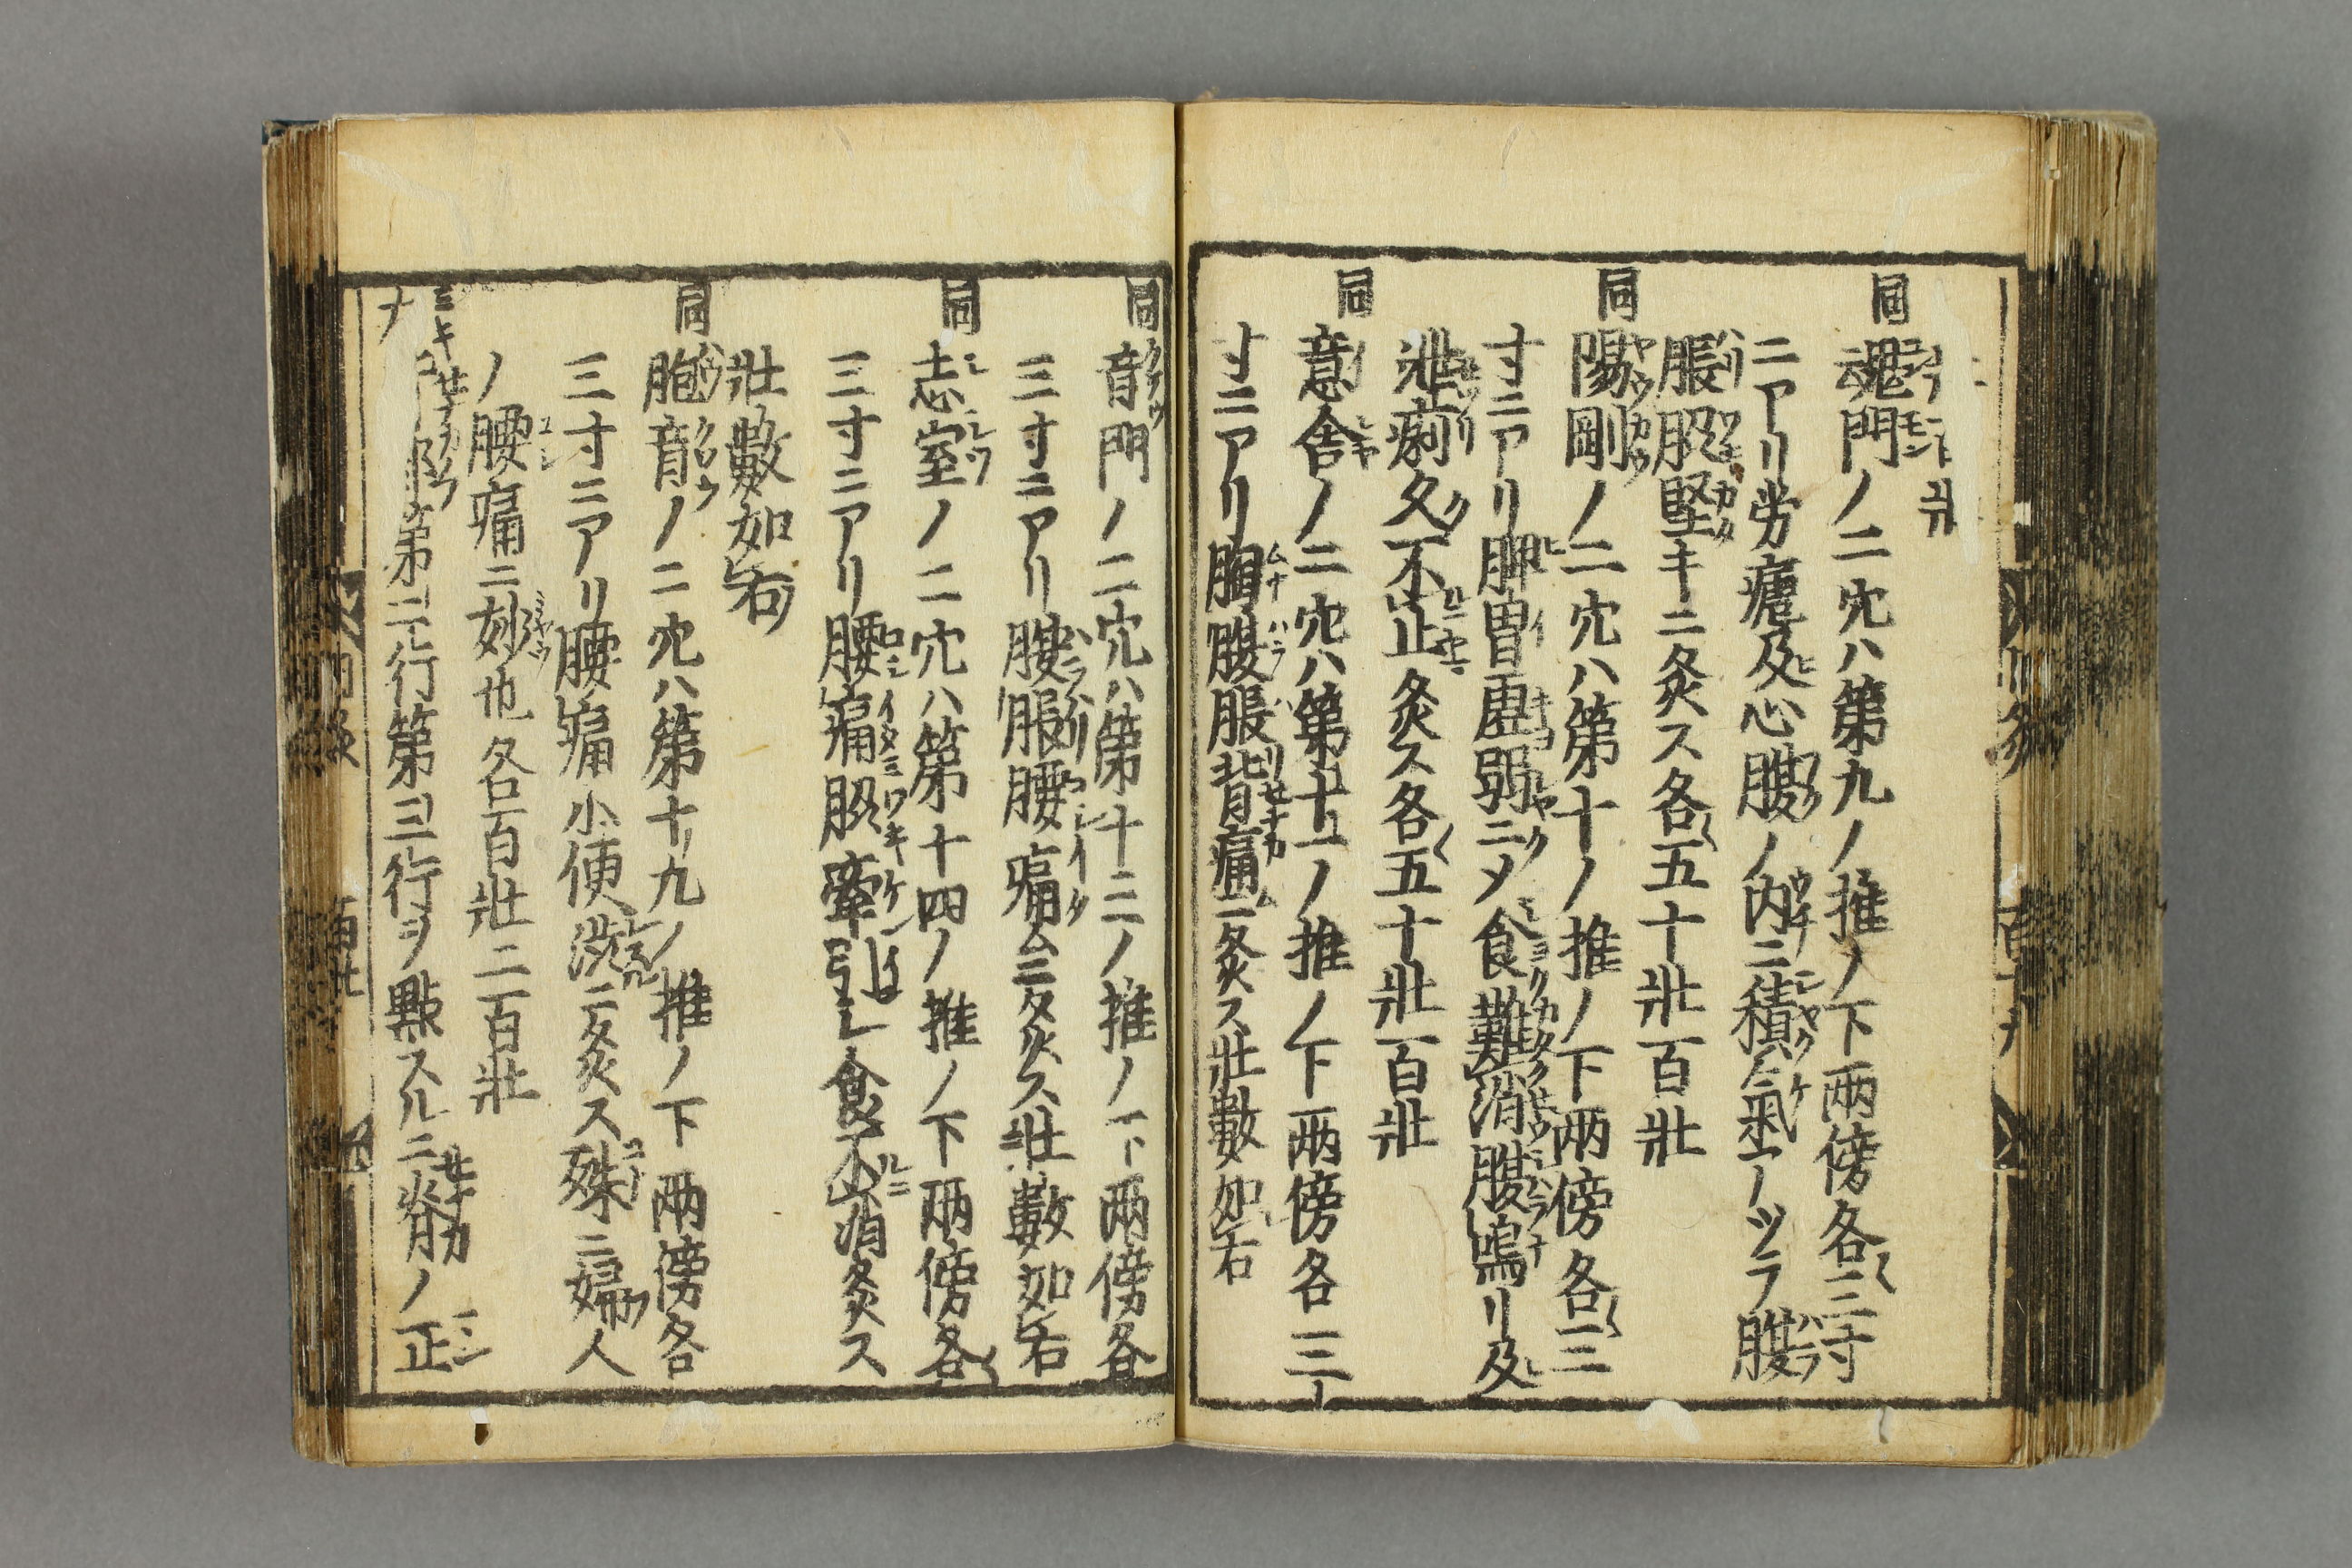 壯
同 魂門ノ二穴ハ第九ノ推ノ下兩傍各三寸
ニアリ労瘧及心腹ノ内ニ積氣アーツラ腹
脹脇堅キニ灸ス各五十壯一百壯
同 陽剛ノ二穴ハ第十ノ推ノ下兩傍各三
寸ニアリ脾胃虚弱ニメ食難消腹鳴リ及
泄痢久不止灸ス各五十壯一百壯
同 意舎ノ二穴ハ第十一ノ推ノ下兩傍各三
寸ニアリ胸腹脹背痛ニ灸ス壯數如右
同 音門ノ二穴ハ第十二ノ推ノ下兩傍各
三寸ニアリ腹脹腰痛ニ灸ス壯數如右
同 志室ノ二穴ハ第十四ノ推ノ下兩傍各
三寸ニアリ腰痛脇牽引シ食不消灸ス
壯數如右
同 胞育ノ二穴ハ第十九ノ推ノ下兩傍各
三寸ニアリ腰痛小便渋ニ灸ス殊ニ婦人
ノ腰痛ニ妙也各一百壯二百壯
第二行第三行ヲ點スルニ脊ノ正